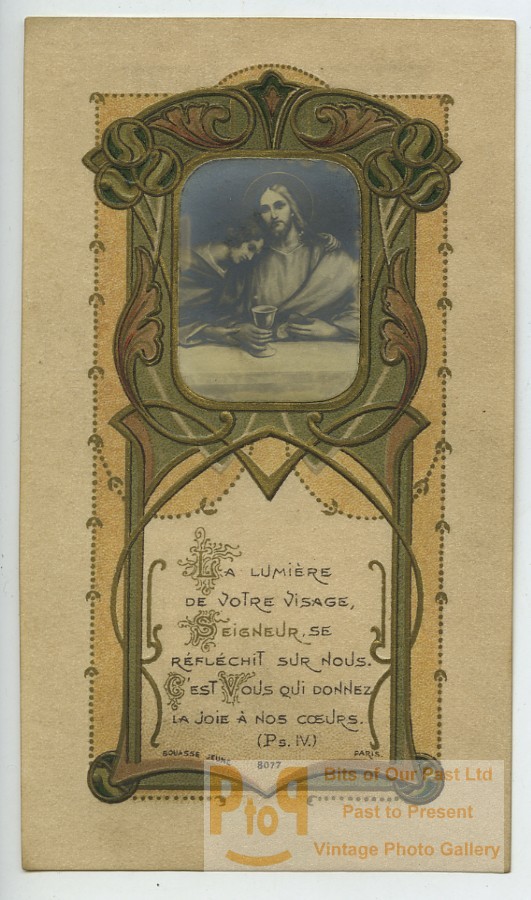 La lumière
de votre visage,
Seigneur, se
réfléchit sur nous.
C'est Vous qui donnez
la joie à nos cœurs.
(Ps. IV.)
BOUASSE JEUNE 8077 PARIS.
PtoP
Bits of Our Past Ltd
Past to Present
Vintage Photo Gallery